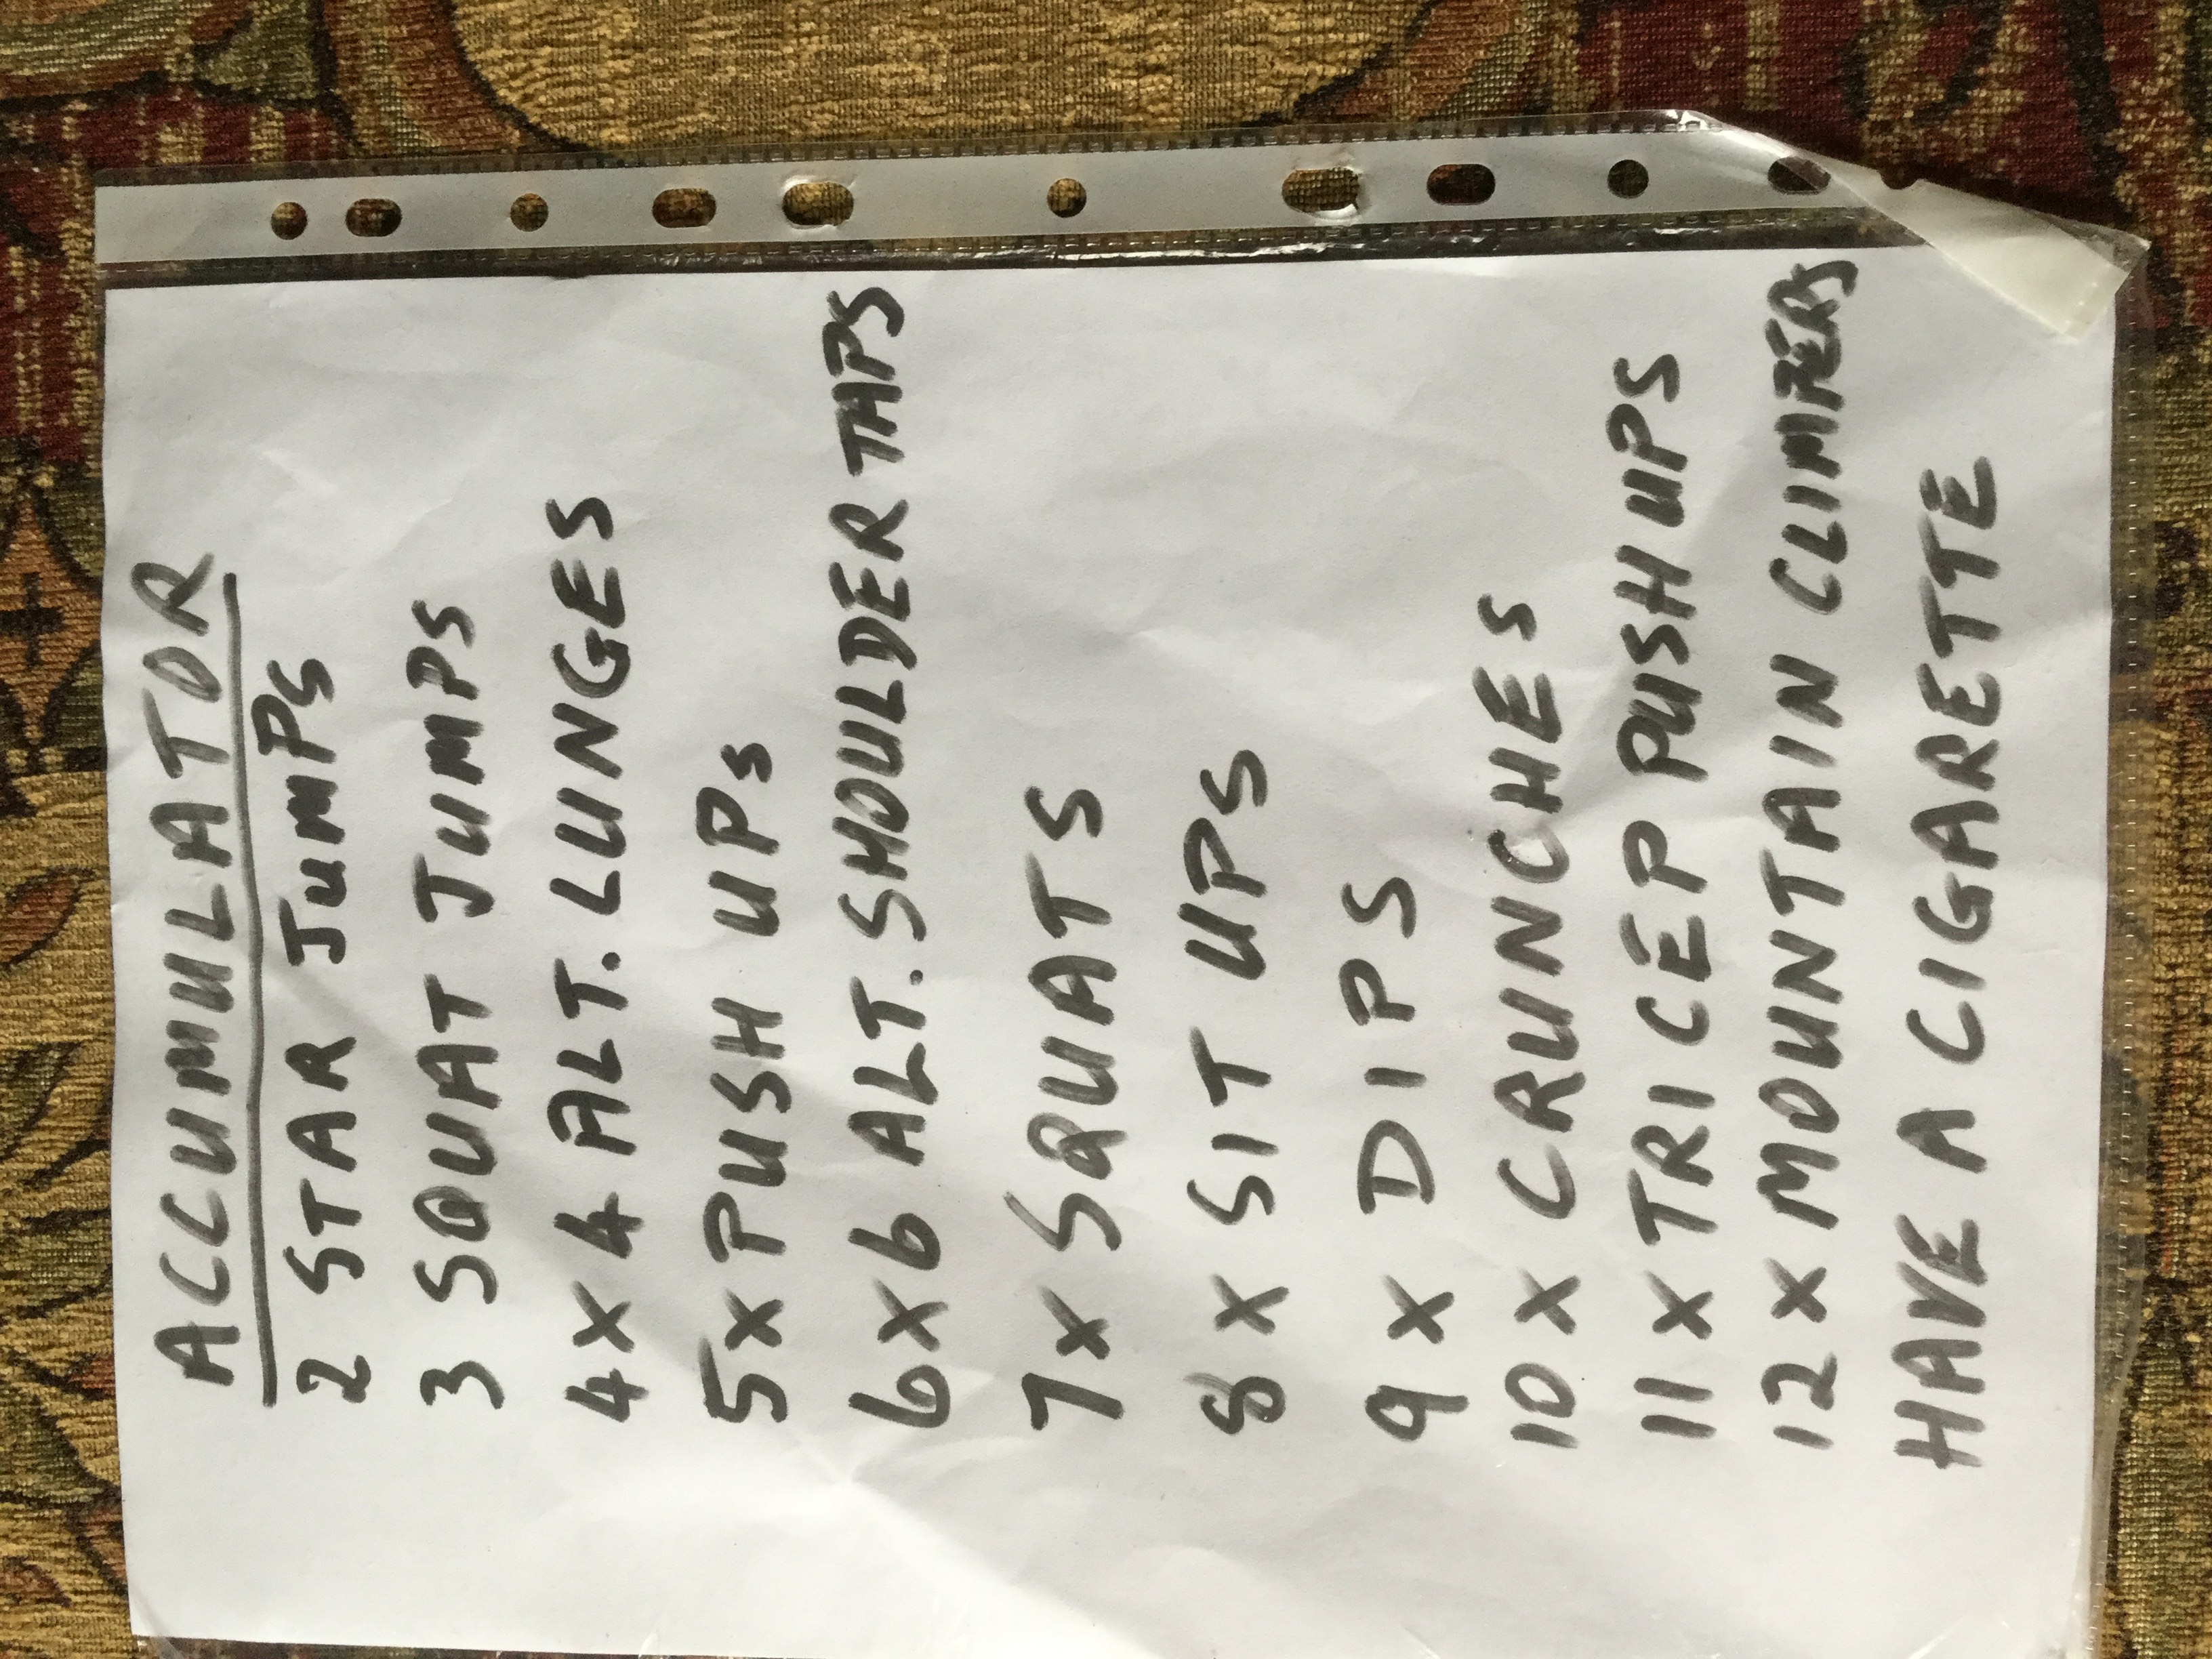 ACCUMULATOR
2 STAR JUMPS
3 SQUAT JUMPS
4 X 4 ALT. LUNGES
5 X PUSH UPS
6 X 6 ALT. SHOULDER TAPS
7 X SQUATS
8 X SIT UPS
9 X DIPS
10 X CRUNCHES
11 X TRICEP PUSH UPS
12 X MOUNTAIN CLIMPERS
HAVE A CIGARETTE